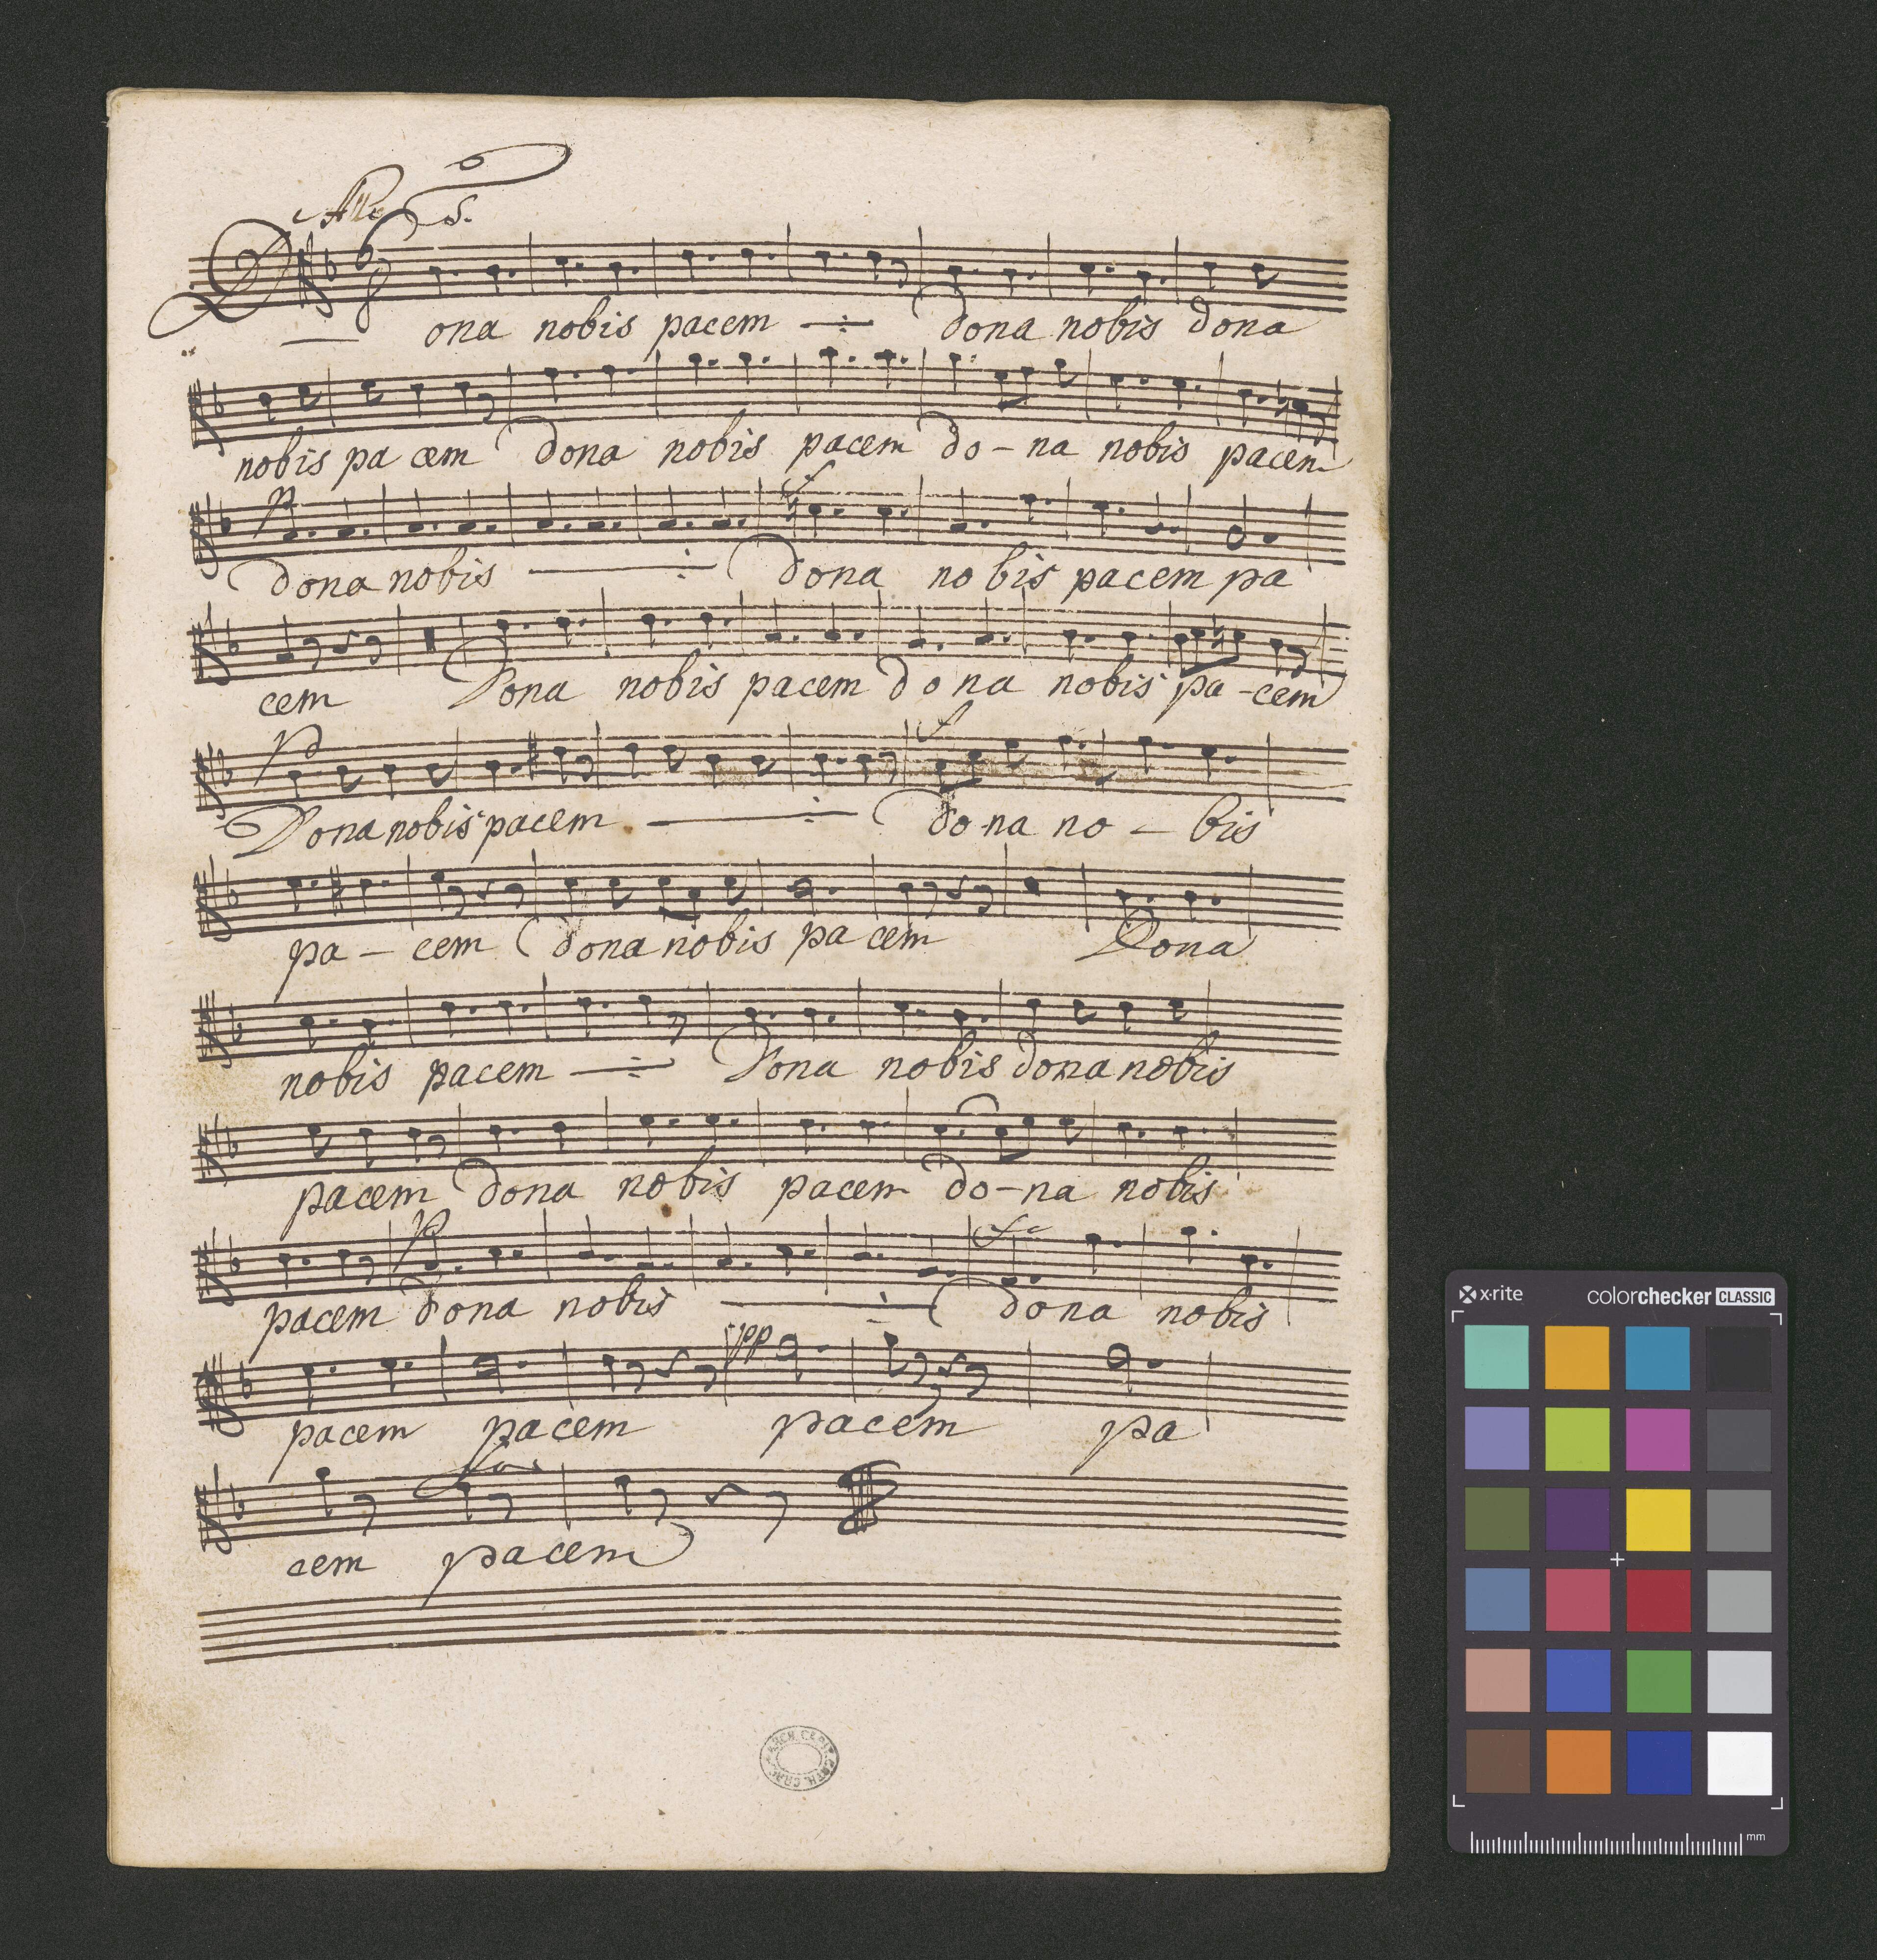 Allo
Dona nobis pacem ÷ dona nobis dona
nobis pa cem dona nobis pacem do - na nobis pacem
p f
dona nobis ÷ dona nobis pacem pa
cem Dona nobis pacem dona nobis pa - cem
p f
Dona nobis pacem ÷ dona no - bis
pa - cem dona nobis pa cem Dona
nobis pacem ÷ Dona nobis dona nobis
pacem dona nobis pacem do - na nobis
p fo
pacem dona nobis ÷ dona nobis
pp
pacem pacem pacem pa
for
cem pacem
ARCH. CAPIT. CATH. CRAC.
x·rite colorchecker CLASSIC
mm